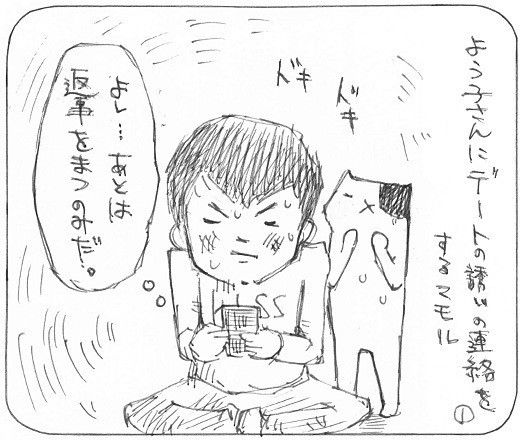 よう子さんにデートの誘いの連絡を
するマモル
①
ドキ
ドキ
22
よし…あとは
返事をまつのみだ。